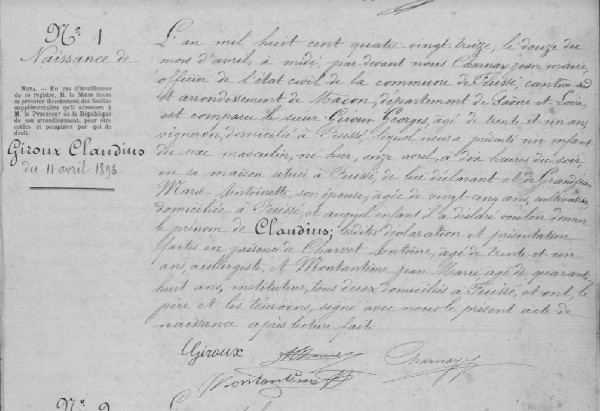 N° 1
Naissance de
NOTA. — En cas d'insuffisance
de ce registre, M. le Maire devra
se procurer directement des feuilles
supplémentaires qu'il adressera à
M. le Procureur de la République
de son arrondissement, pour être
cotées et paraphées par qui de
droit.
Giroux Claudius
du 11 avril 1893
L'an mil huit cent quatre-vingt-treize, le douze du
mois d'avril, à midi, par devant nous Charnay Jean Marie,
officier de l'état civil de la commune de Fuissé, canton sud
et arrondissement de Mâcon, département de Saône et Loire,
est comparu le sieur Giroux Georges, âgé de trente et un ans,
vigneron, domicilié à Fuissé lequel nous a présenté un enfant
du sexe masculin, né hier, onze avril, à dix heures du soir,
en sa maison située à Fuissé de lui déclarant et de Grandjean
Marie Antoinette son épouse, âgée de vingt-cinq ans, cultivatrice
domiciliée à Fuissé, et auquel enfant il a déclaré vouloir donner
le prénom de Claudius; lesdites déclaration et présentation
faites en présence de Charvet Antoine, âgé de trente et un
ans, aubergiste, et Montantème Jean Marie âgé de quarante
huit ans, instituteur, tous deux domiciliés à Fuissé, et ont, le
père et les témoins, signé avec nous le présent acte de
naissance après lecture fait.
Giroux Charnay
Montantème
N° 2